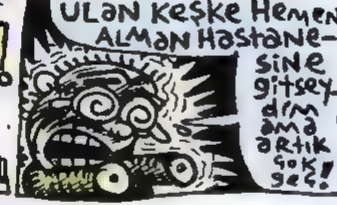 ULAN KEŞKE HEMEN
ALMAN HASTANE-
SİNE
gİTSEY-
DİM
AMA
ARTIK
ÇOK
gEÇ!